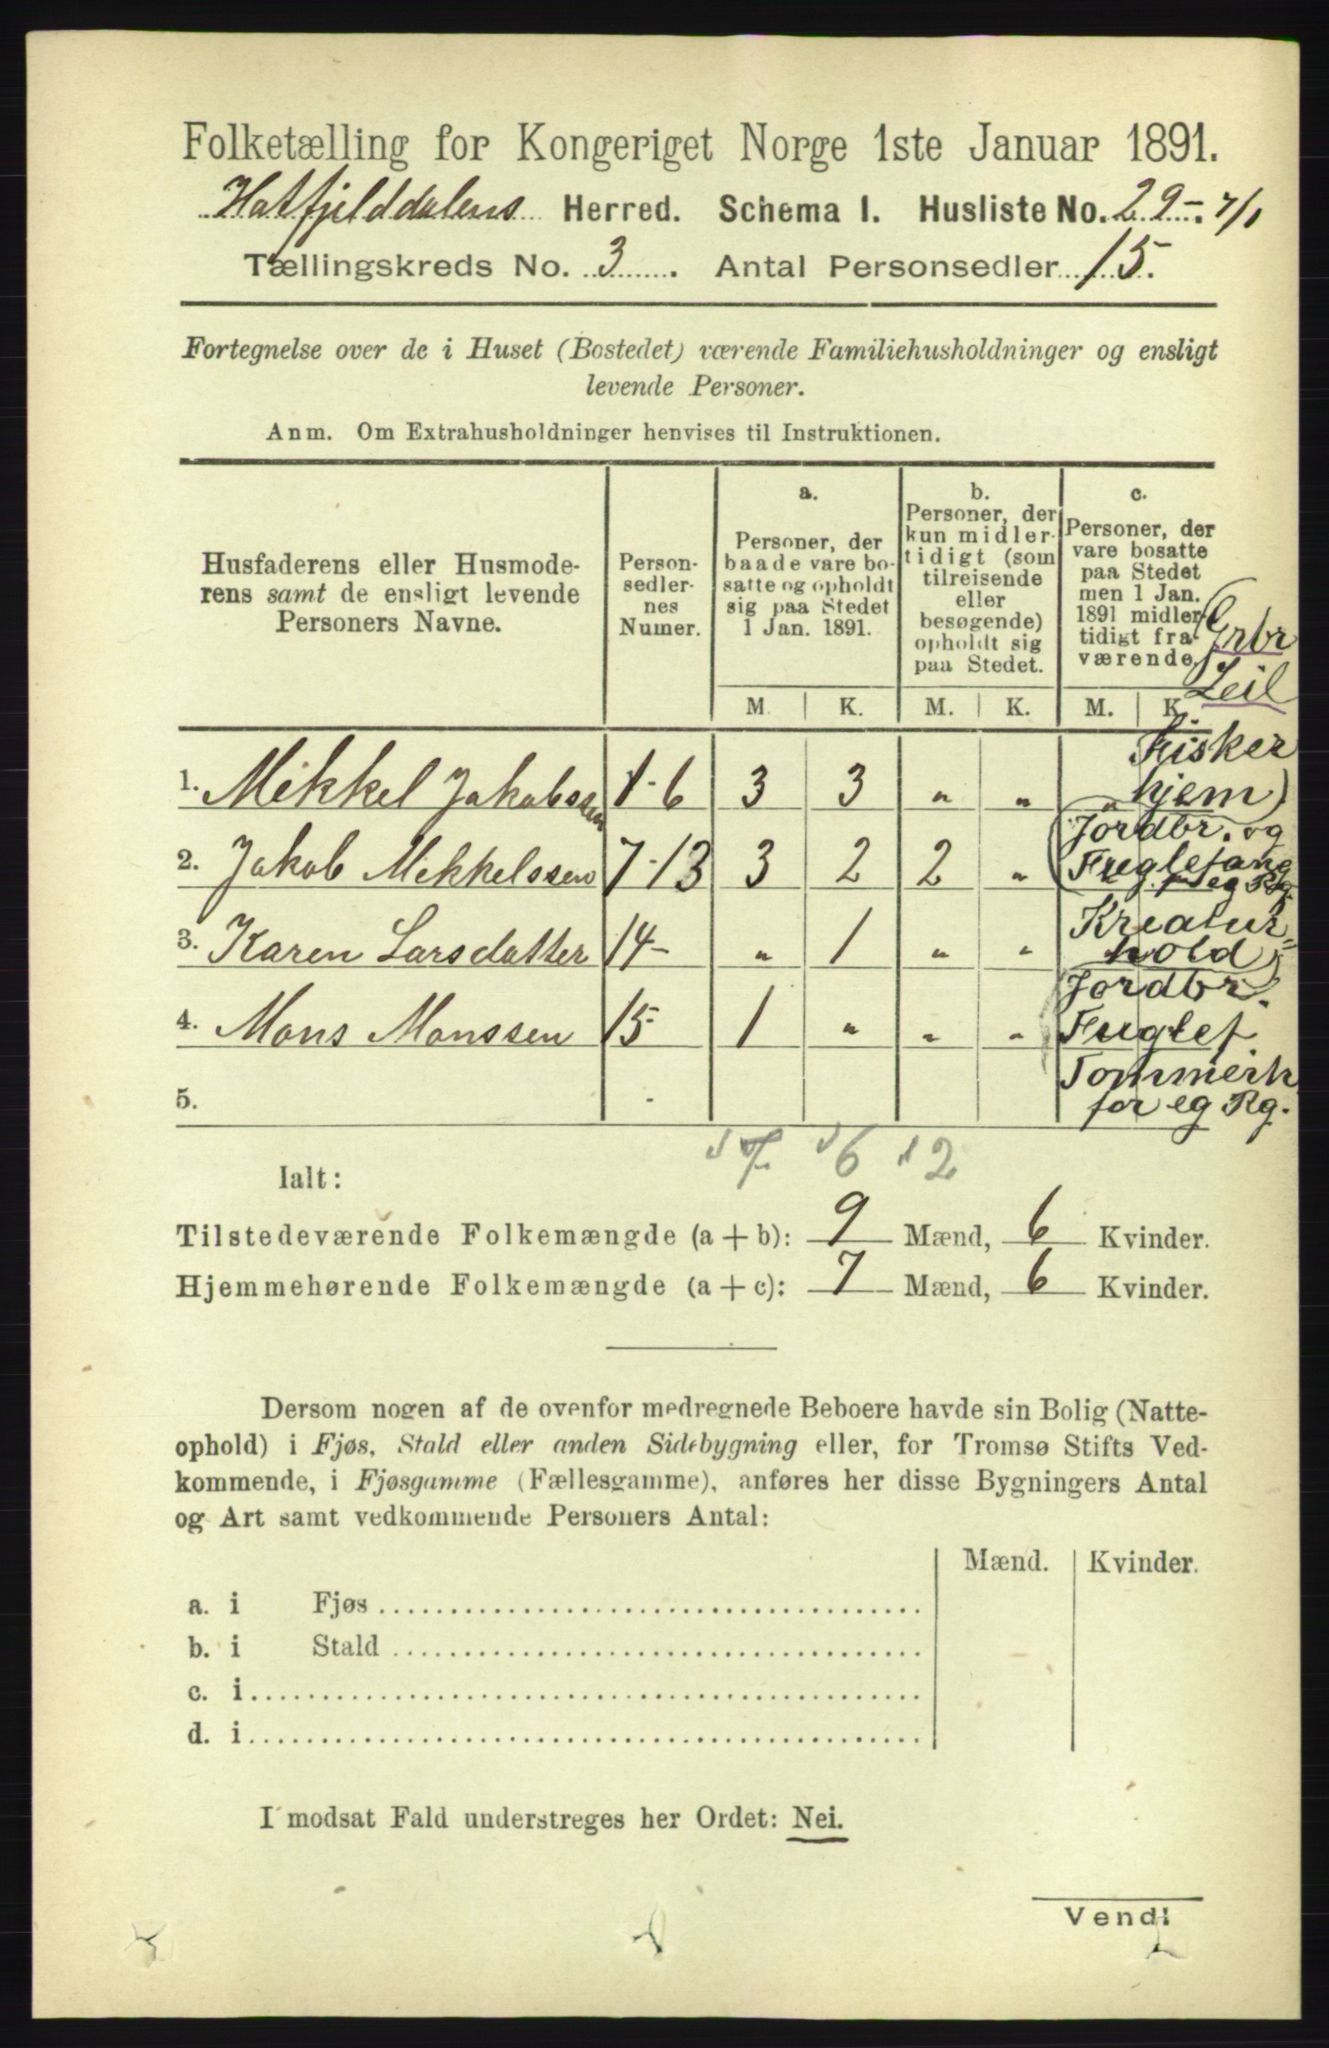 Folketælling for Kongeriget Norge 1ste Januar 1891.
Hatfjelddalens Herred. Schema I. Husliste No. 29 - 7/1
Tællingskreds No. 3. Antal Personsedler 15.
Fortegnelse over de i Huset (Bostedet) værende Familiehusholdninger og ensligt
levende Personer.
Anm. Om Extrahusholdninger henvises til Instruktionen.
Husfaderens eller Husmode-
rens samt de ensligt levende
Personers Navne.
Person-
sedler-
nes
Numer.
a.
Personer, der
baade vare bo-
satte og opholdt
sig paa Stedet
1 Jan. 1891.
b.
Personer, der
kun midler-
tidigt (som
tilreisende
eller
besøgende)
opholdt sig
paa Stedet.
c.
Personer, der
vare bosatte
paa Stedet
men 1 Jan.
1891 midler-
tidigt fra-
værende.
M. K. M. K. M. K.
Grbr
Leil
Fisker
hjem)
(Jordbr. og
Fuglefang
f eg Rg.
Kreatur=
hold)
(Jordbr.
Fuglef.
Tømmerh
for eg Rg.
1. Mikkel Jakobssen 1-6 3 3 " " "
2. Jakob Mikkelssen 7-13 3 2 2 "
3. Karen Larsdatter 14- " 1 " "
4. Mons Monssen 15- 1 " " "
5. -
7 6 2
Ialt:
Tilstedeværende Folkemængde (a + b): 9 Mænd, 6 Kvinder.
Hjemmehørende Folkemængde (a + c): 7 Mænd, 6 Kvinder.
Dersom nogen af de ovenfor medregnede Beboere havde sin Bolig (Natte-
ophold) i Fjøs, Stald eller anden Sidebygning eller, for Tromsø Stifts Ved-
kommende, i Fjøsgamme (Fællesgamme), anføres her disse Bygningers Antal
og Art samt vedkommende Personers Antal:
Mænd. Kvinder.
a. i Fjøs
b. i Stald
c. i
d. i
I modsat Fald understreges her Ordet: Nei.
Vend!